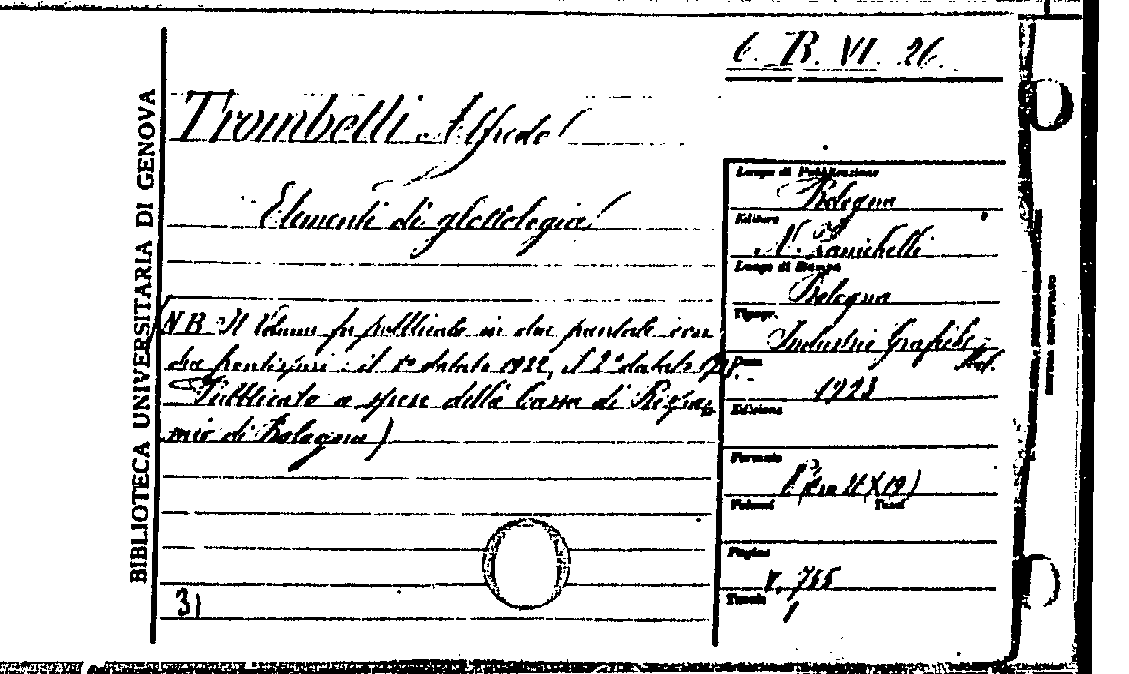 6. B. VI. 26.
BIBLIOTECA UNIVERSITARIA DI GENOVA
Trombelli Alfredo
Elementi di glottologia
(N.B. Il volume fu pubblicato in due puntate con
due frontespizi: il 1º datato 1922, il 2º datato 1923.
Pubblicato a spese della Cassa di Rispar-
mio di Bologna)
31
Luogo di Pubblicazione
Bologna
Editore
N. Zanichelli
Luogo di Stampa
Bologna
Tipogr.
Industrie Grafiche
Data
1923
Edizione
Formato
Volumi Tomi
Pagine
V, 755
Tavole
1